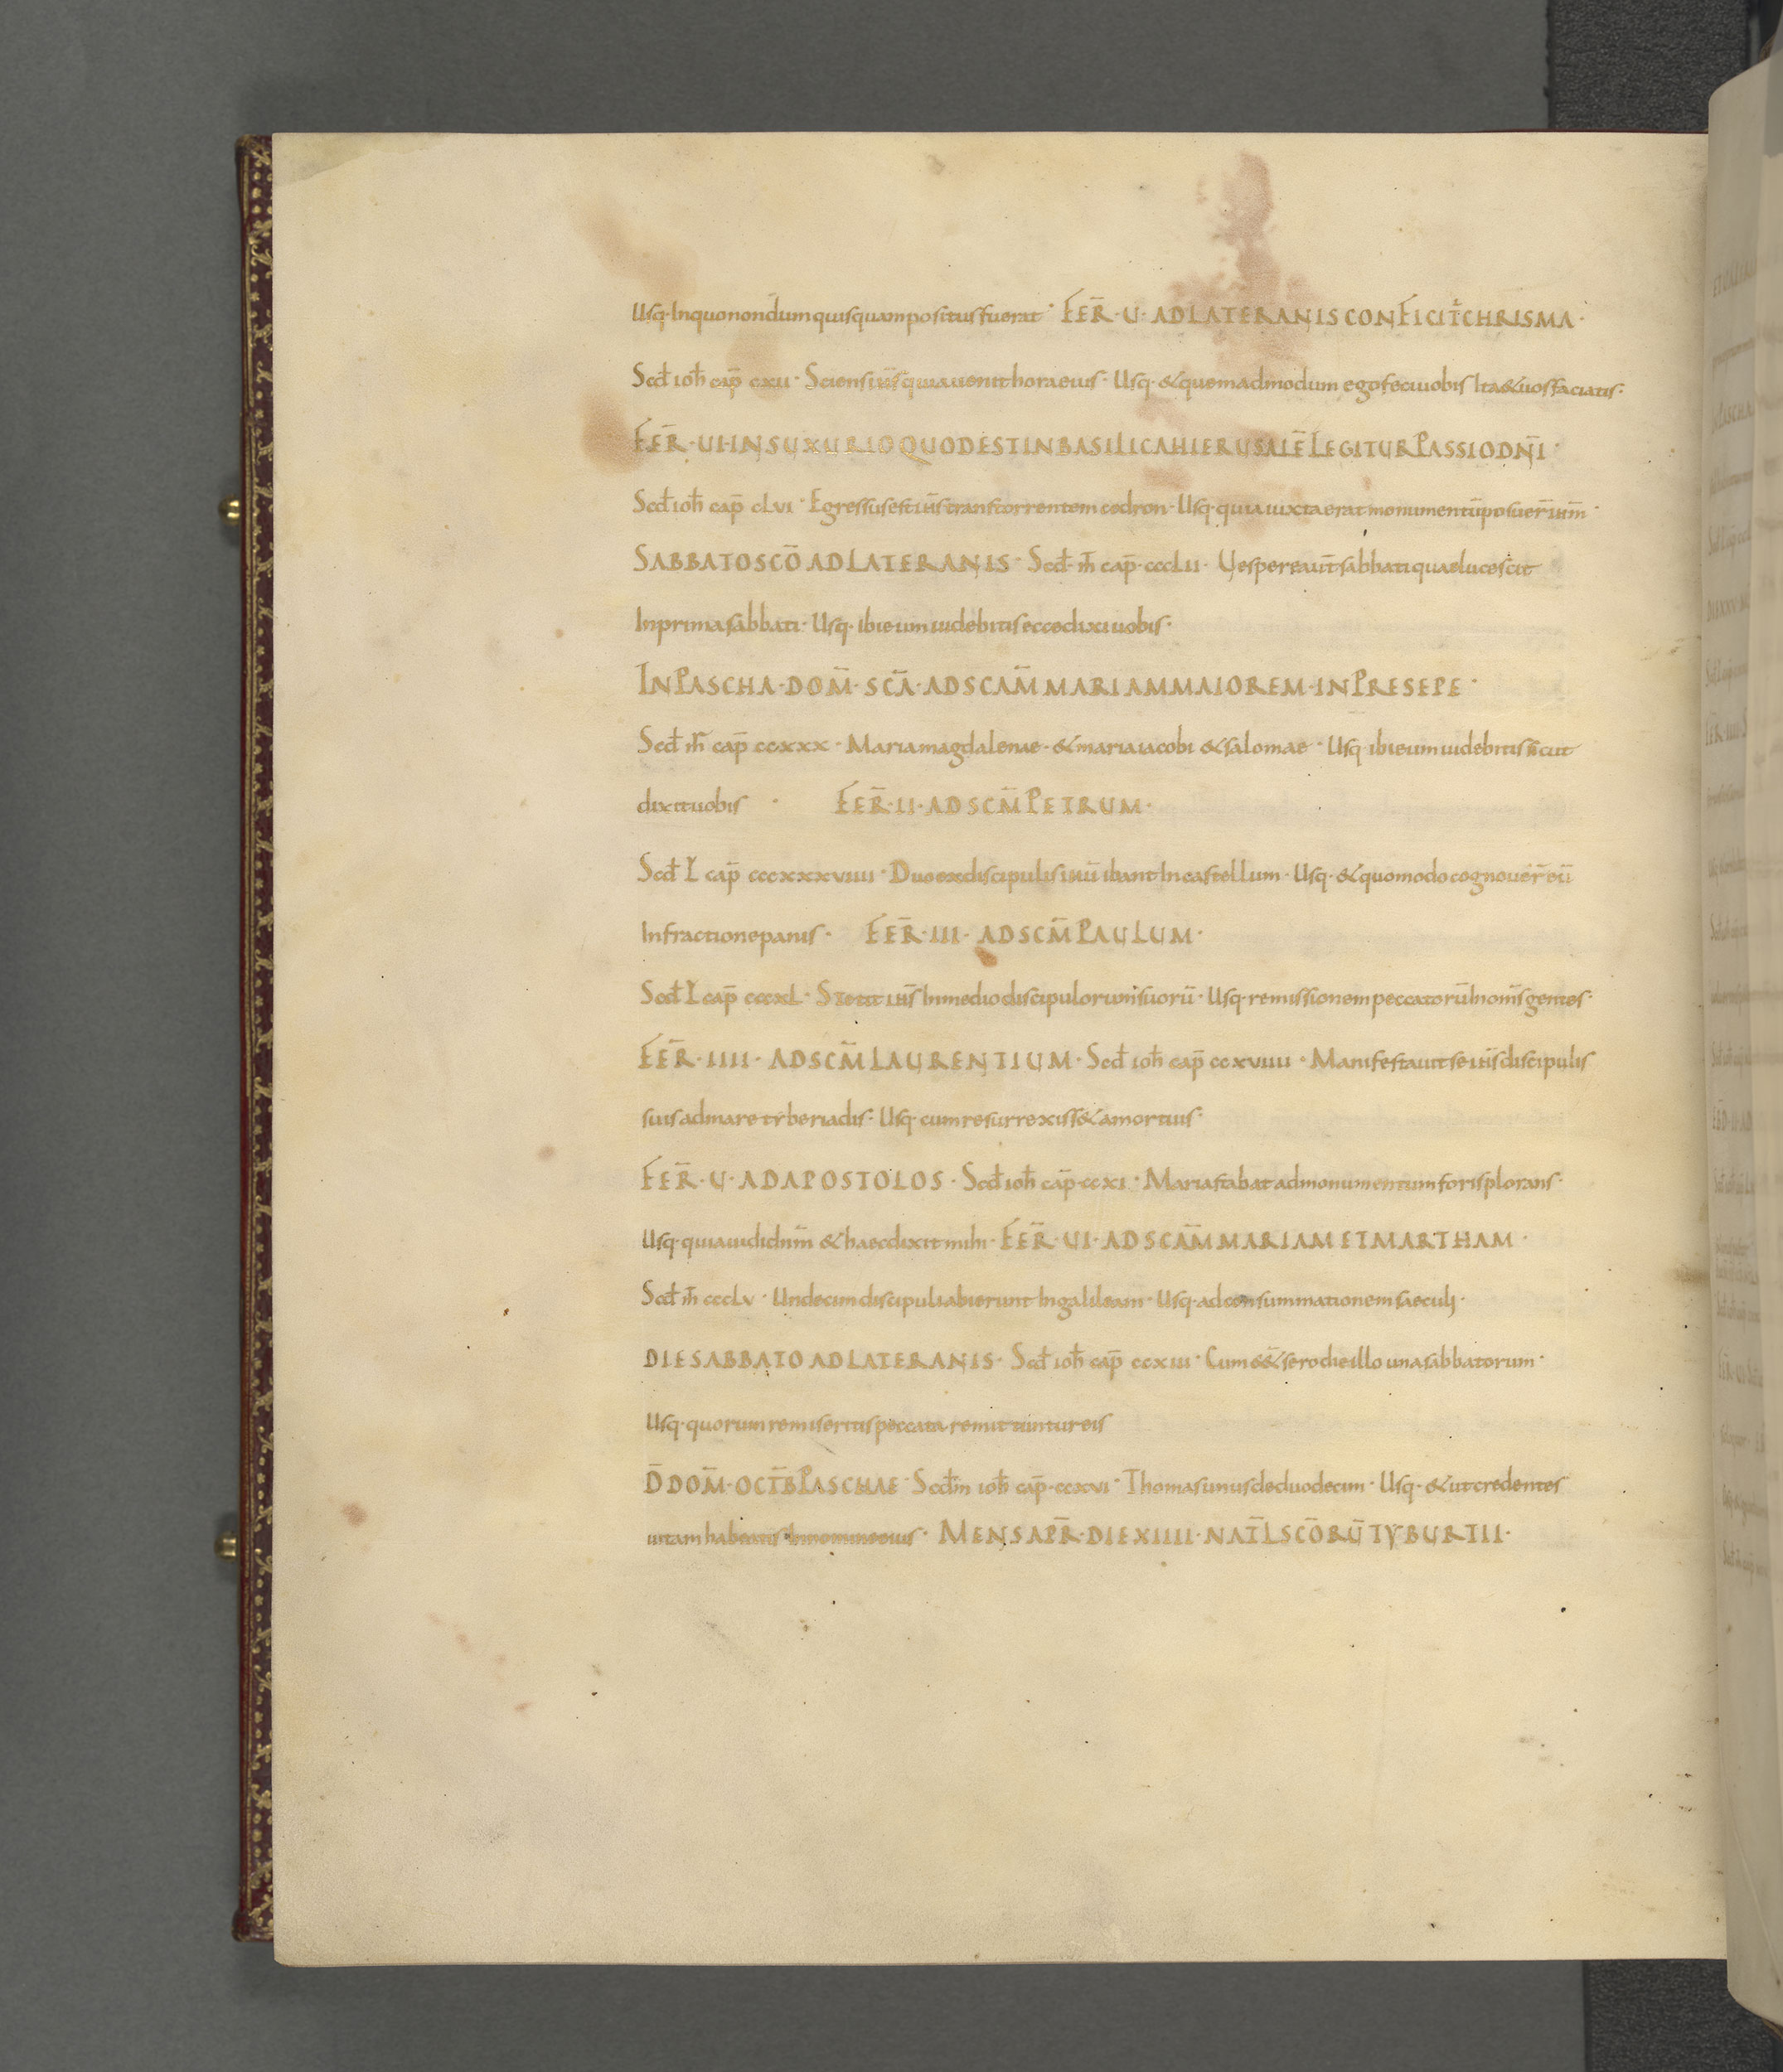 Usq· Inquonondum quisquam positus fuerat· FER̄· U· AD LATERANIS CONFICIT̄ CHRISMA·
Scd̄ ioh̄ cap̄ cxii· Sciens ih̄s quia uenit hora eius· Usq· & quemadmodum ego feci uobis Ita & uos faciatis·
FER̄· UI· IN SUXURIO QUOD EST IN BASILICA HIERUSALĒ LEGITUR PASSIO DN̄I·
Scd̄ ioh̄ cap̄ clvi· Egressus est ih̄s trans torrentem cedron· Usq· quia iuxta erat monumentū posuer̄ ih̄m·
SABBATO SCŌ AD LATERANIS· Scd̄· m̄· cap̄· ccclii· Uespere aut̄ sabbati quae lucescit
Inprima sabbati· Usq· ibi eum uidebitis ecce dixi uobis·
IN PASCHA· DOM̄· SCĀ· AD SCAM̄ MARIAM MAIOREM· IN PRESEPE·
Scd̄ m̄r cap̄ ccxxx· Maria magdalenae· & maria iacobi & salomae· Usq· ibi eum uidebitis sicut
dixit uobis· FER̄· II· AD SCM̄ PETRUM·
Scd̄ L cap̄ cccxxxviiii· Duo ex discipulis ih̄u ibant In castellum· Usq· & quomodo cognouer̄ eū
In fractione panis· FER̄· III· AD SCM̄ PAULUM·
Scd̄ L cap̄ cccxl· Stetit ih̄s In medio discipulorum suorū· Usq· remissionem peccatorū In om̄s gentes·
FER̄· IIII· AD SCM̄ LAURENTIUM· Scd̄ ioh̄ cap̄ ccxviiii· Manifestauit se ih̄s discipulis
suis ad mare tyberiadis· Usq· cum resurrexiss& a mortuis·
FER̄· U· AD APOSTOLOS· Scd̄ ioh̄ cap̄· ccxi· Maria stabat ad monumentum foris plorans·
Usq· quia uidi dn̄m & haec dixit mihi· FER̄· UI· AD SCAM̄ MARIAM ET MARTHAM·
Scd̄ m̄ ccclv· Undecim discipuli abierunt In galileam· Usq· ad consummationem saeculi·
DIE SABBATO AD LATERANIS· Scd̄ ioh̄ cap̄ ccxiii· Cum ess& sero die illo una sabbatorum·
Usq· quorum remiseritis peccata remittuntur eis
D̄ DOM̄· OCT̄B PASCHAE· Scd̄m ioh̄ cap̄· ccxvi· Thomas unus de duodecim· Usq· & ut credentes
uitam habeatis In nomine eius· MENS APR̄· DIE XIIII· NAT̄L SCŌRŪ TYBURTII·